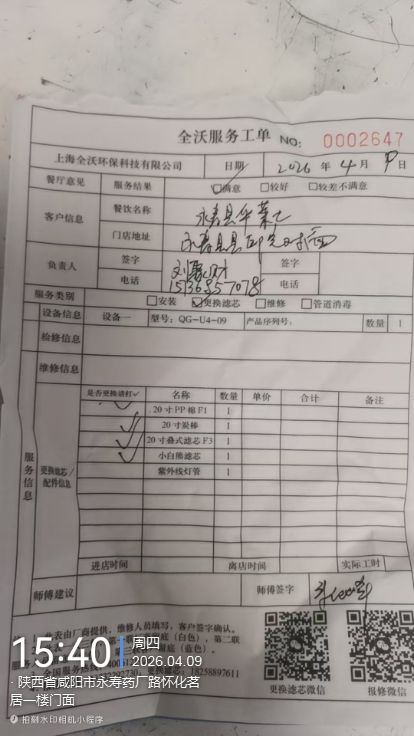 全沃服务工单 NO: 0002647
上海全沃环保科技有限公司 日期 2026年4月9日
餐厅意见 服务结果 ☑满意 □较好 □较差不满意
客户信息 餐饮名称 永寿县华莱士
门店地址 永寿县
负责人 签字 签字
电话 电话
服务类别 □安装 ☑更换滤芯 □维修 □管道消毒
设备信息 设备一 型号: QG-U4-09 产品序列号: 数量 1
检修信息
维修信息
服务信息
更换滤芯/配件信息
是否更换请打✓ 名称 数量 单价 合计 备注
✓ 20寸PP棉F1 1
✓ 20寸炭棒 1
✓ 20寸叠式滤芯F3 1
✓ 小白熊滤芯 1
紫外线灯管 1
进店时间 离店时间 实际工时
师傅建议 师傅签字
表由厂商提供,维修人员填写,客户签字确认。
底(白色),第二联
底(蓝色)。
18258897611
更换滤芯微信 报修微信
15:40 周四
2026.04.09
·陕西省咸阳市永寿药厂路怀化茗
居一楼门面
拍刻水印相机小程序